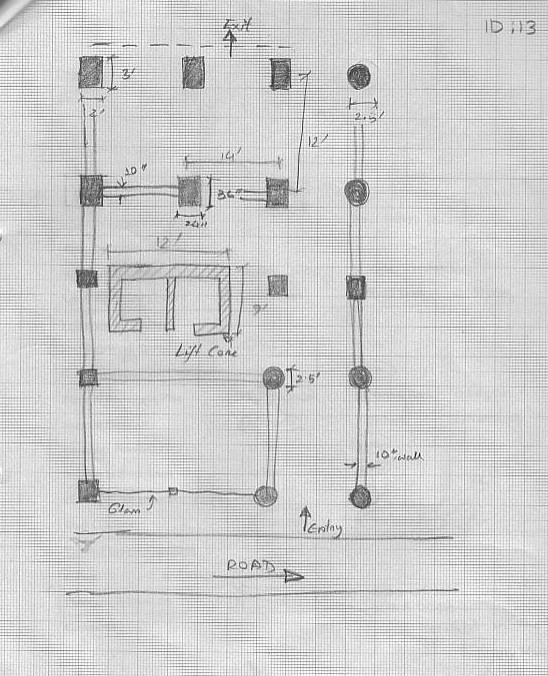 Exit
ID:13
3'
2'
2.5'
12'
14'
10"
36"
24"
12'
9'
Lift Core
2.5'
10" wall
Glass
Entry
ROAD